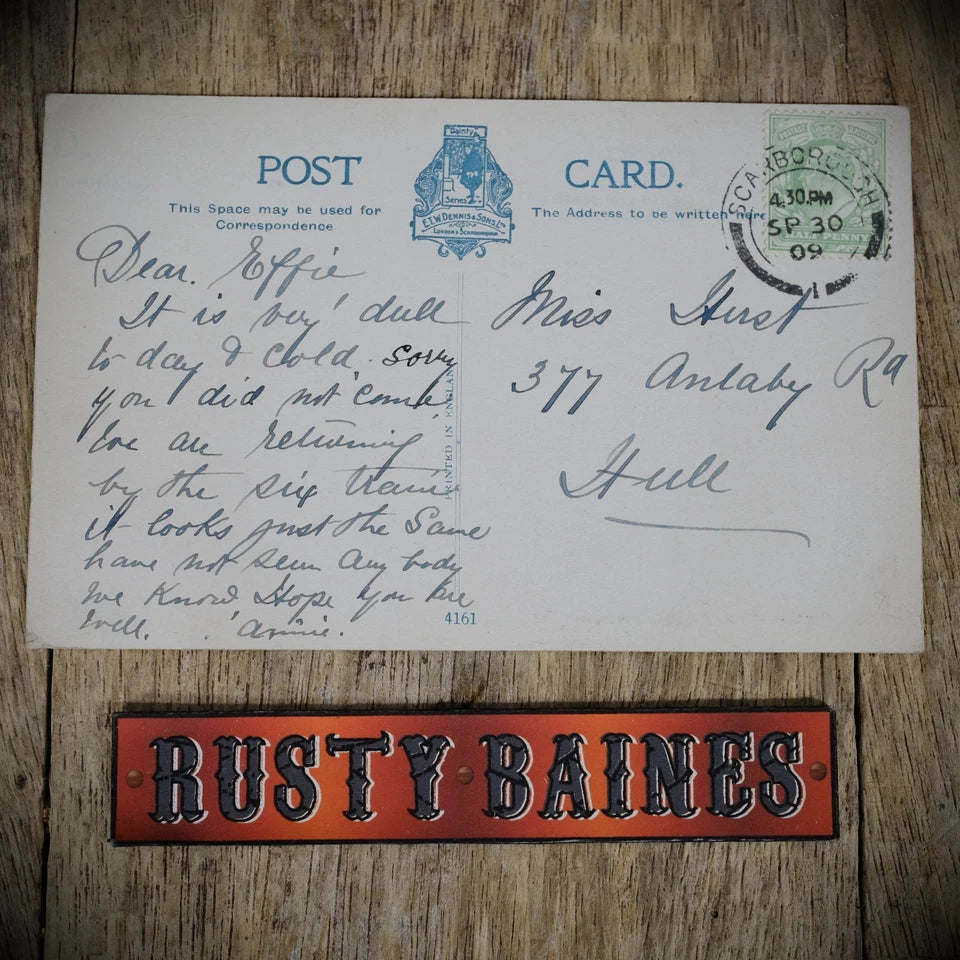 POST CARD.
Dainty
Series
E.T.W. DENNIS & SONS, LTD
LONDON & SCARBOROUGH
This Space may be used for
Correspondence
The Address to be written here
SCARBOROUGH
4.30.PM
SP 30
09
1
POSTAGE REVENUE
HALFPENNY
Dear. Effie
It is very dull
to day & cold. Sorry
you did not come
We are returning
by the six train
it looks just the Same
have not seen any body
we know Hope you are
well. Annie.
PRINTED IN ENGLAND
4161
Miss Hurst
377 Anlaby Rd
Hull
RUSTY BAINES